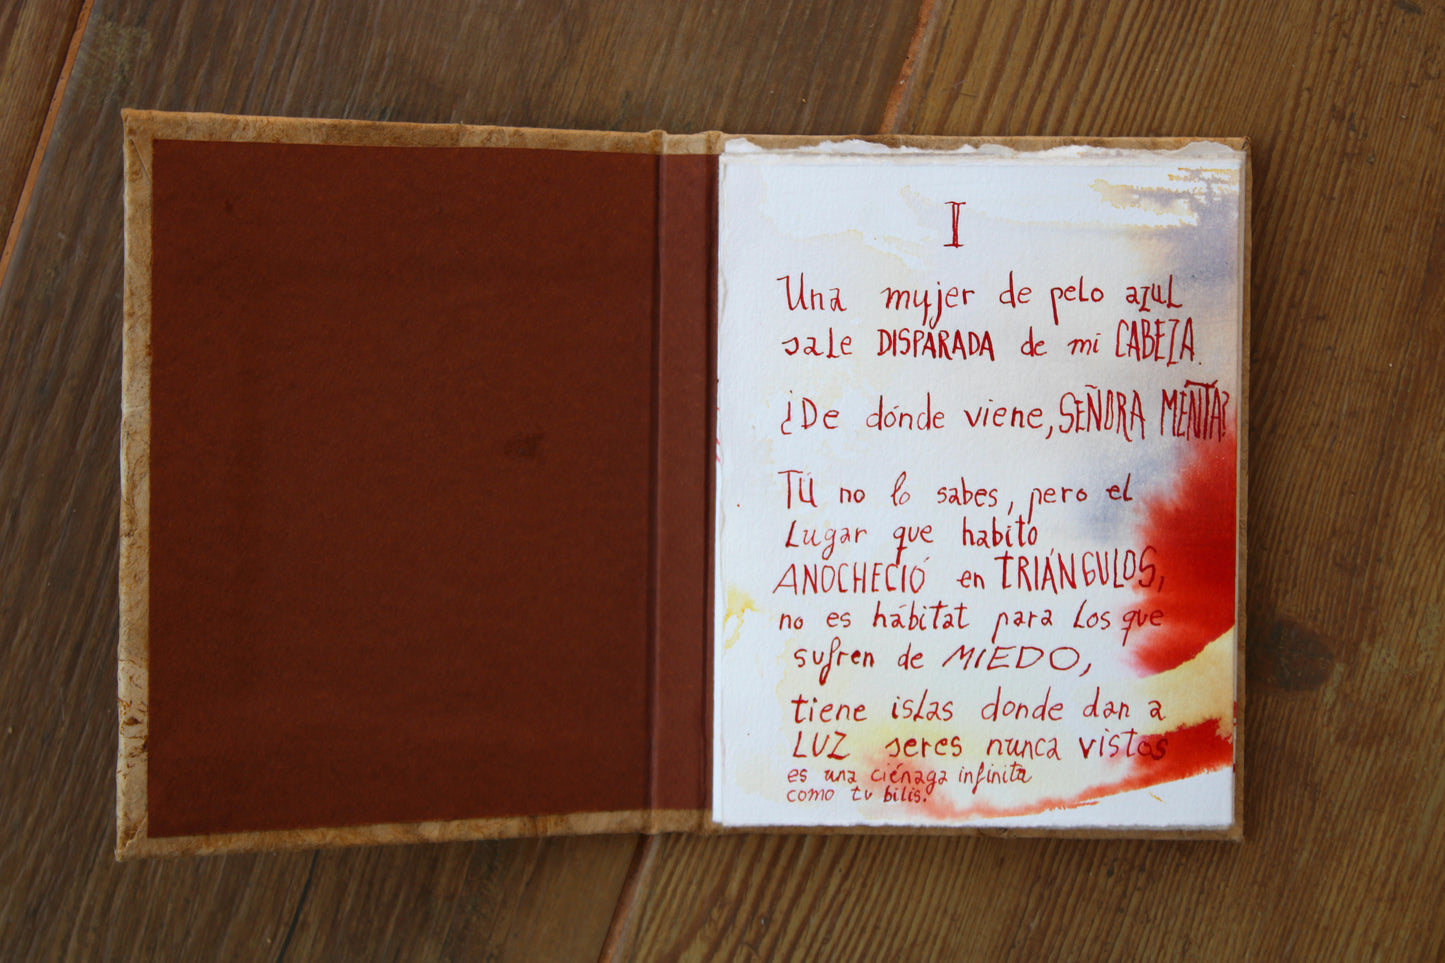 I
Una mujer de pelo azul
sale DISPARADA de mi CABEZA.
¿De dónde viene, SEÑORA MENTA?
TÚ no lo sabes, pero el
Lugar que habito
ANOCHECIÓ en TRIÁNGULOS,
no es hábitat para Los que
sufren de MIEDO,
tiene islas donde dan a
LUZ seres nunca vistos
es una ciénaga infinita
como tu bilis.